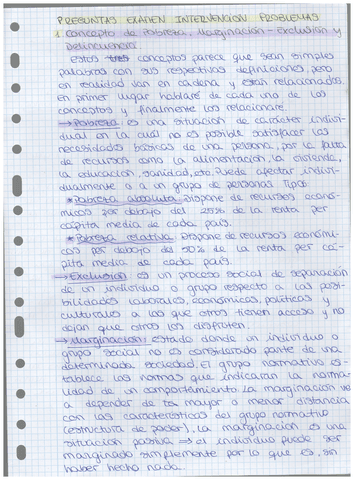 PREGUNTAS EXAMEN INTERVENCION PROBLEMAS
1. Concepto de Pobreza, Marginación - Exclusión y
Delincuencia:
Estos tres conceptos parece que sean simples
palabras con sus respectivas definiciones, pero
en realidad van en cadena y están relacionados.
en primer lugar hablaré de cada uno de los
conceptos y finalmente los relacionaré.
→ Pobreza: es una situación de carácter indivi-
dual en la cual no es posible satisfacer las
necesidades básicas de una persona, por la falta
de recursos como la alimentación, la vivienda,
la educación, sanidad, etc. Puede afectar indivi-
dualmente o a un grupo de personas. Tipos:
* Pobreza absoluta: Dispone de recursos econó-
micos por debajo del 25% de la renta per
cápita media de cada país.
* Pobreza relativa: Dispone de recursos económi-
cos por debajo del 50% de la renta per cá-
pita media de cada país.
→ Exclusión: es un proceso social de separación
de un individuo o grupo respecto a las posi-
bilidades laborales, económicas, políticas y
culturales a las que otros tienen acceso y no
dejan que otros los disfruten.
→ Marginación: estado donde un individuo o
grupo social no es considerado parte de una
determinada sociedad. El grupo normativo es-
tablece las normas que indicaran la norma-
lidad de un comportamiento. La marginación va
a depender de la mayor o menor distancia
con las características del grupo normativo
(estructura de poder), la marginación es una
situación pasiva ⇒ el individuo puede ser
marginado simplemente por lo que es, sin
haber hecho nada.